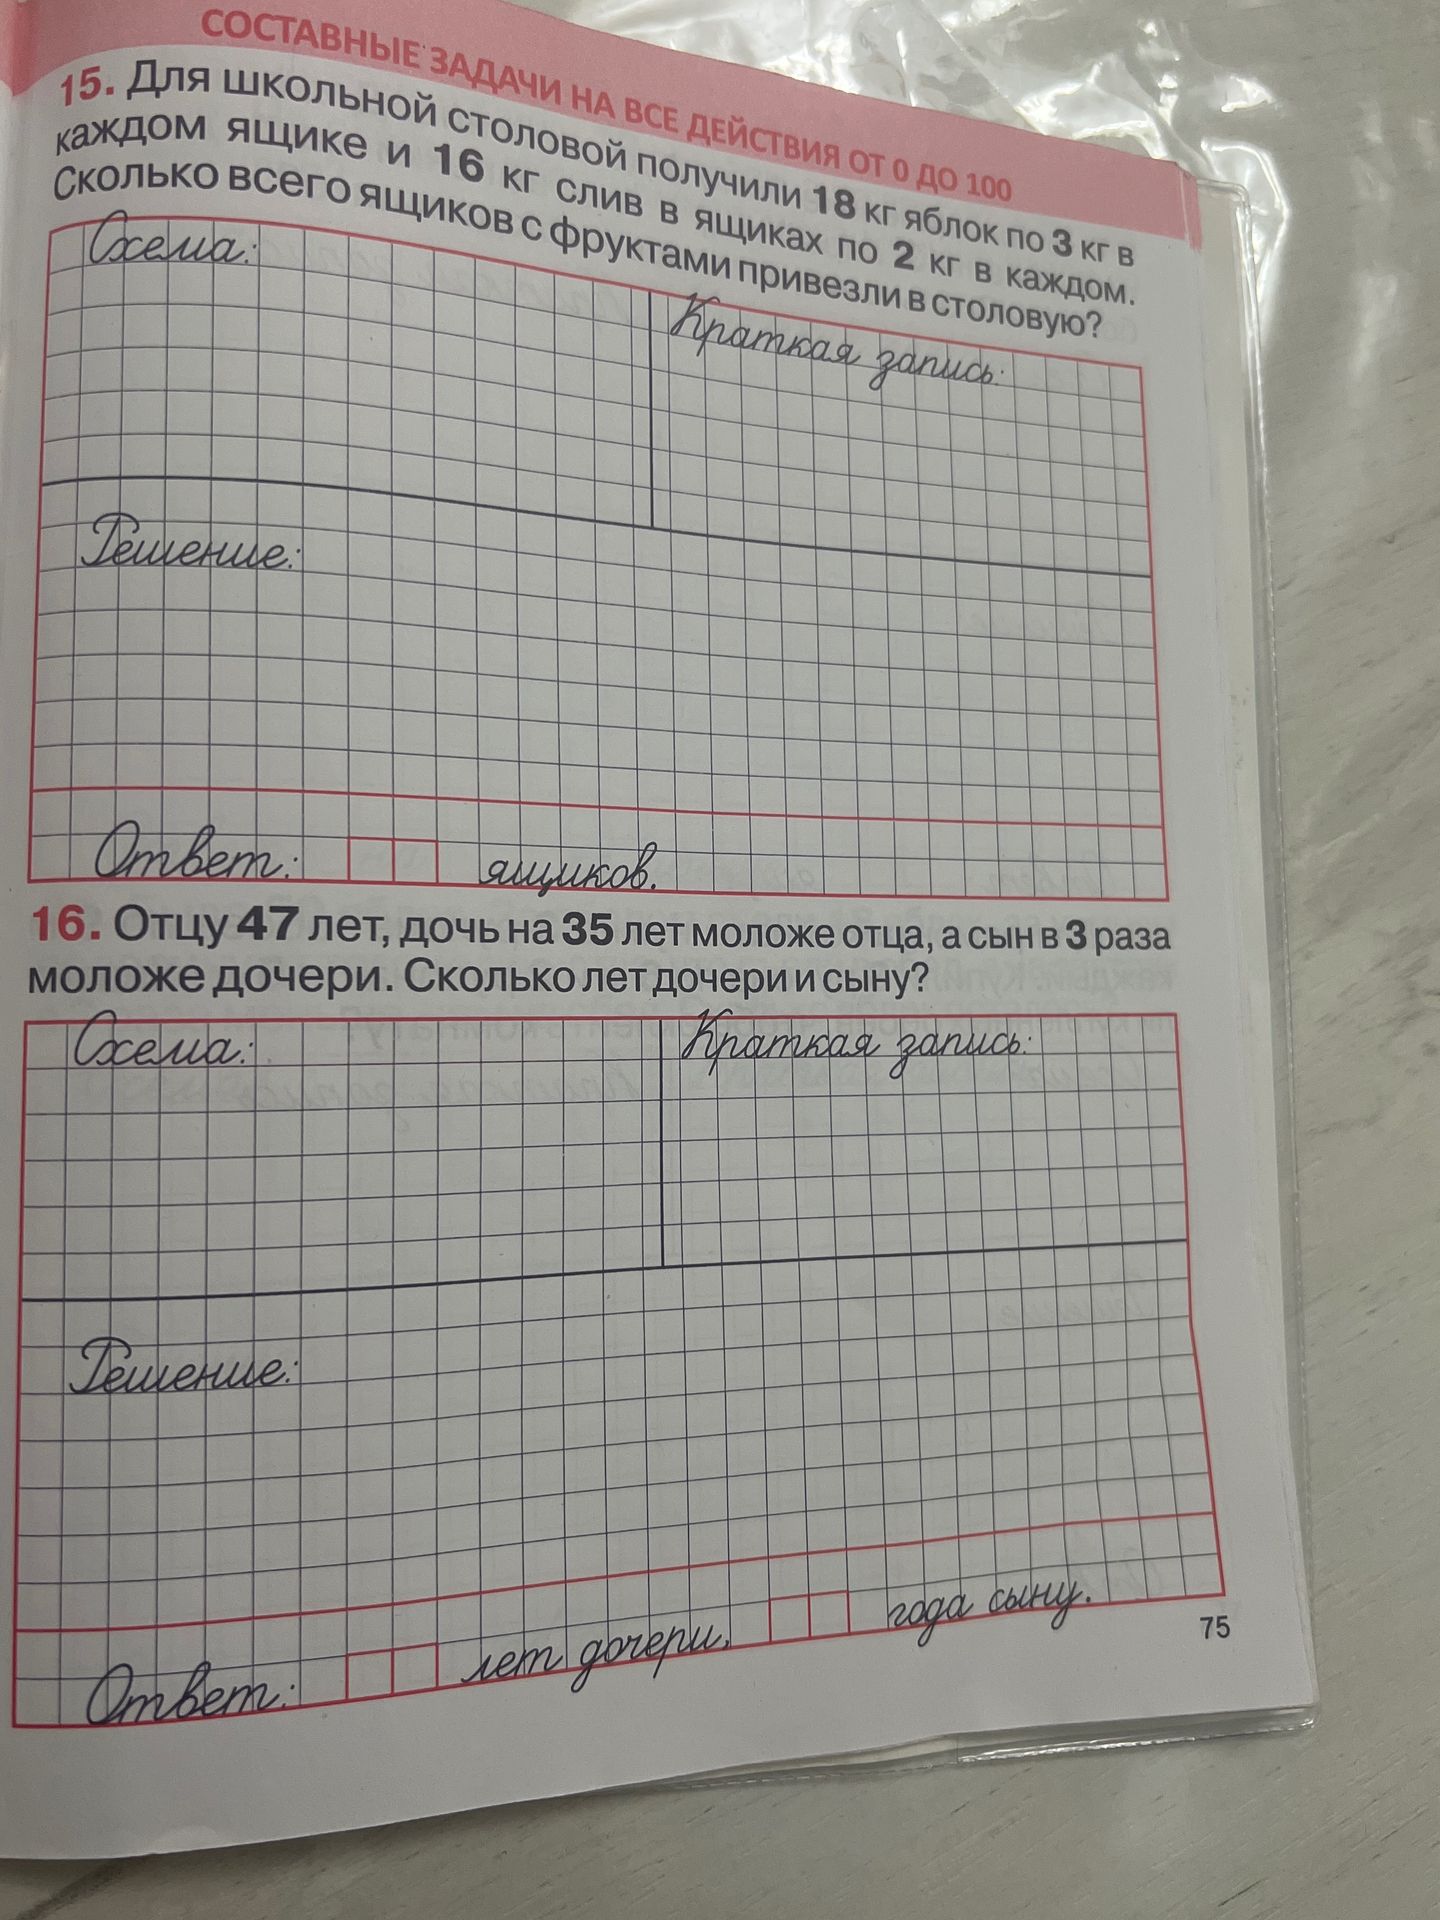 СОСТАВНЫЕ ЗАДАЧИ НА ВСЕ ДЕЙСТВИЯ ОТ 0 ДО 100
15. Для школьной столовой получили 18 кг яблок по 3 кг в
каждом ящике и 16 кг слив в ящиках по 2 кг в каждом.
Сколько всего ящиков с фруктами привезли в столовую?
Схема:
Краткая запись:
Решение:
Ответ: ящиков.
16. Отцу 47 лет, дочь на 35 лет моложе отца, а сын в 3 раза
моложе дочери. Сколько лет дочери и сыну?
Схема:
Краткая запись:
Решение:
Ответ: лет дочери, года сыну.
75